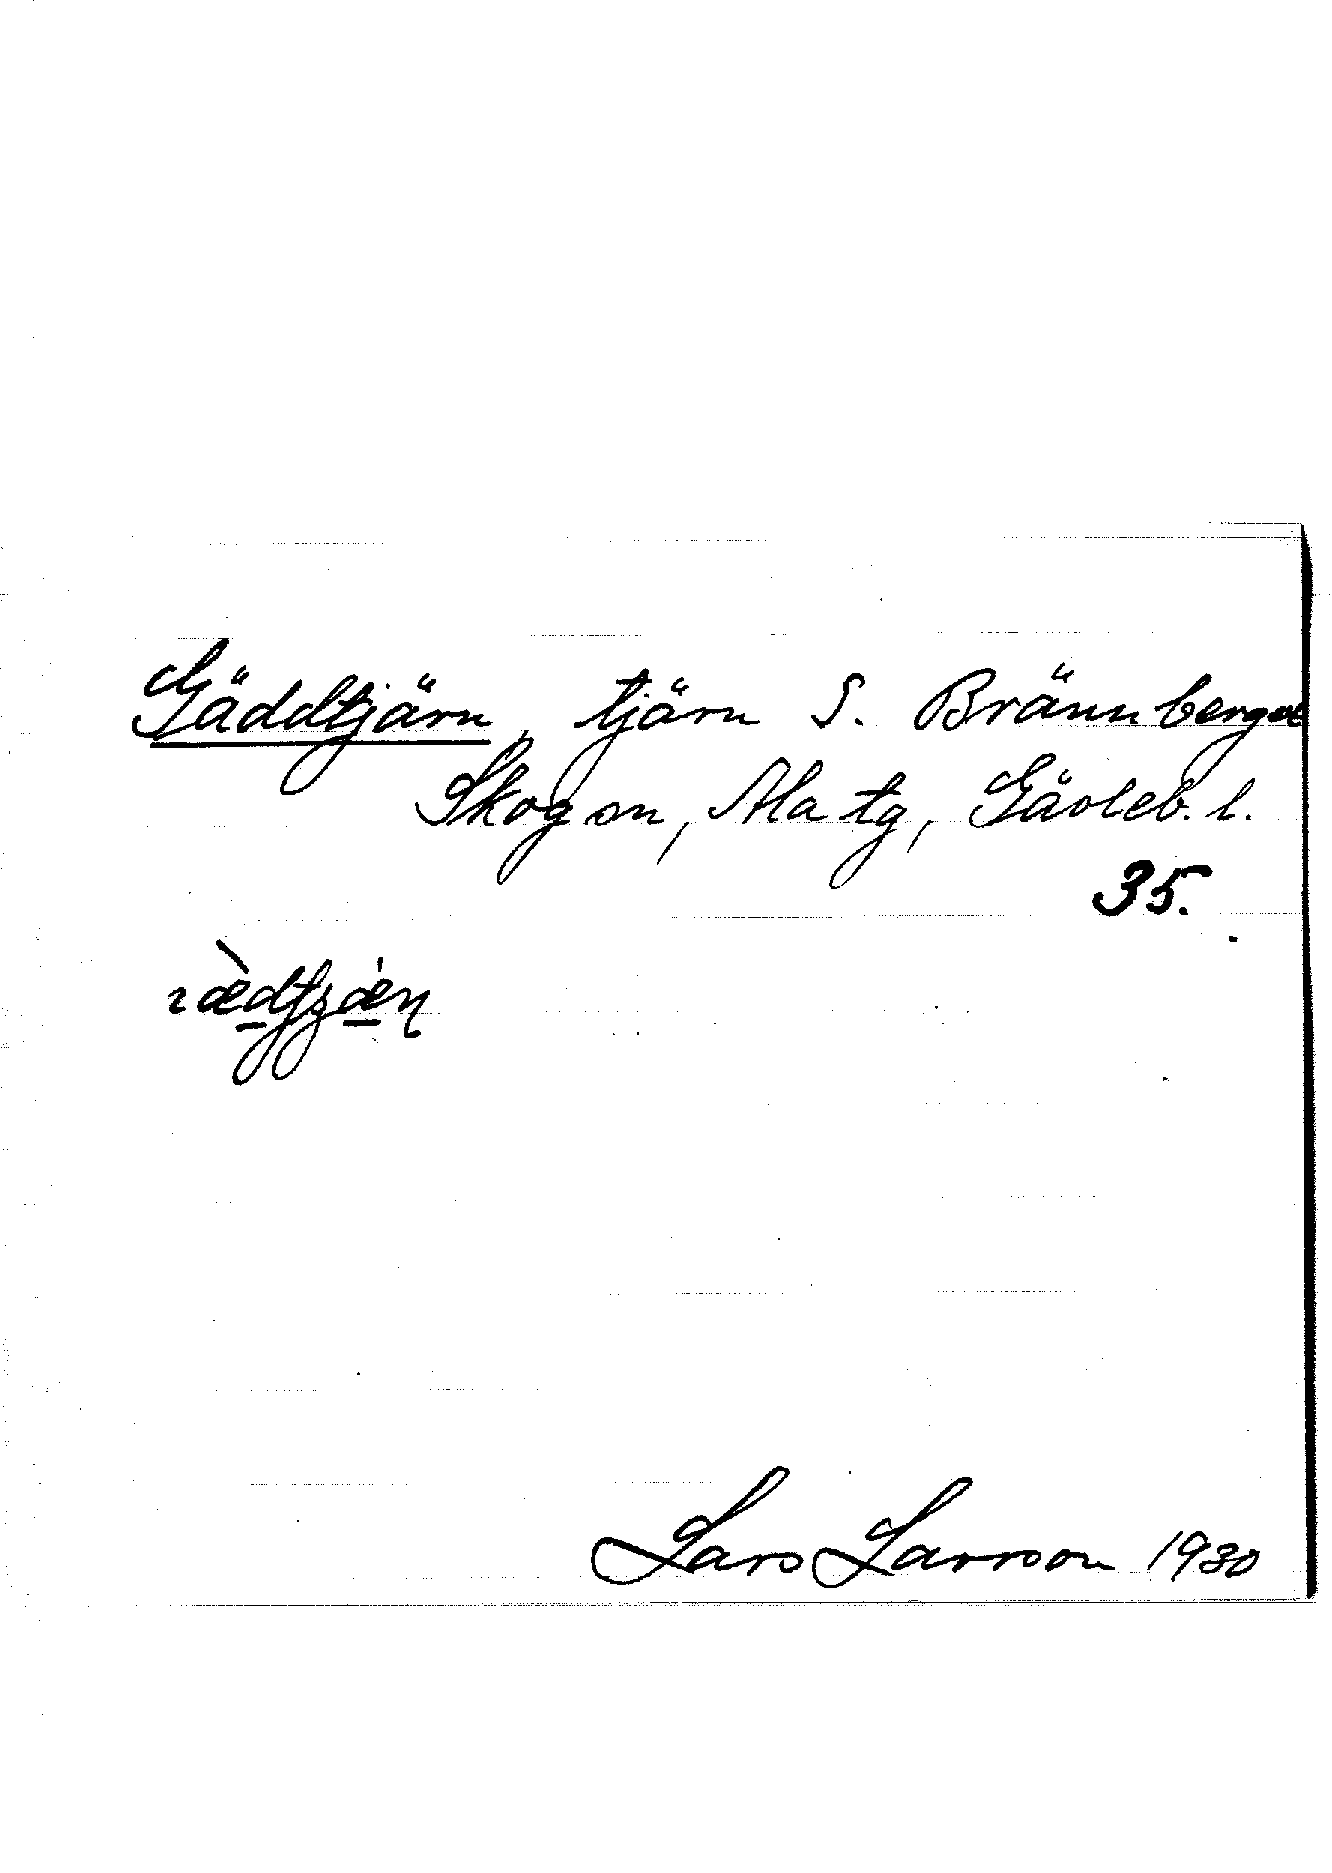 Gäddtjärn, tjärn S. Brännberget
Skog sn, Ala tg, Gävleb. l.
35.
Lars Larsson 1930